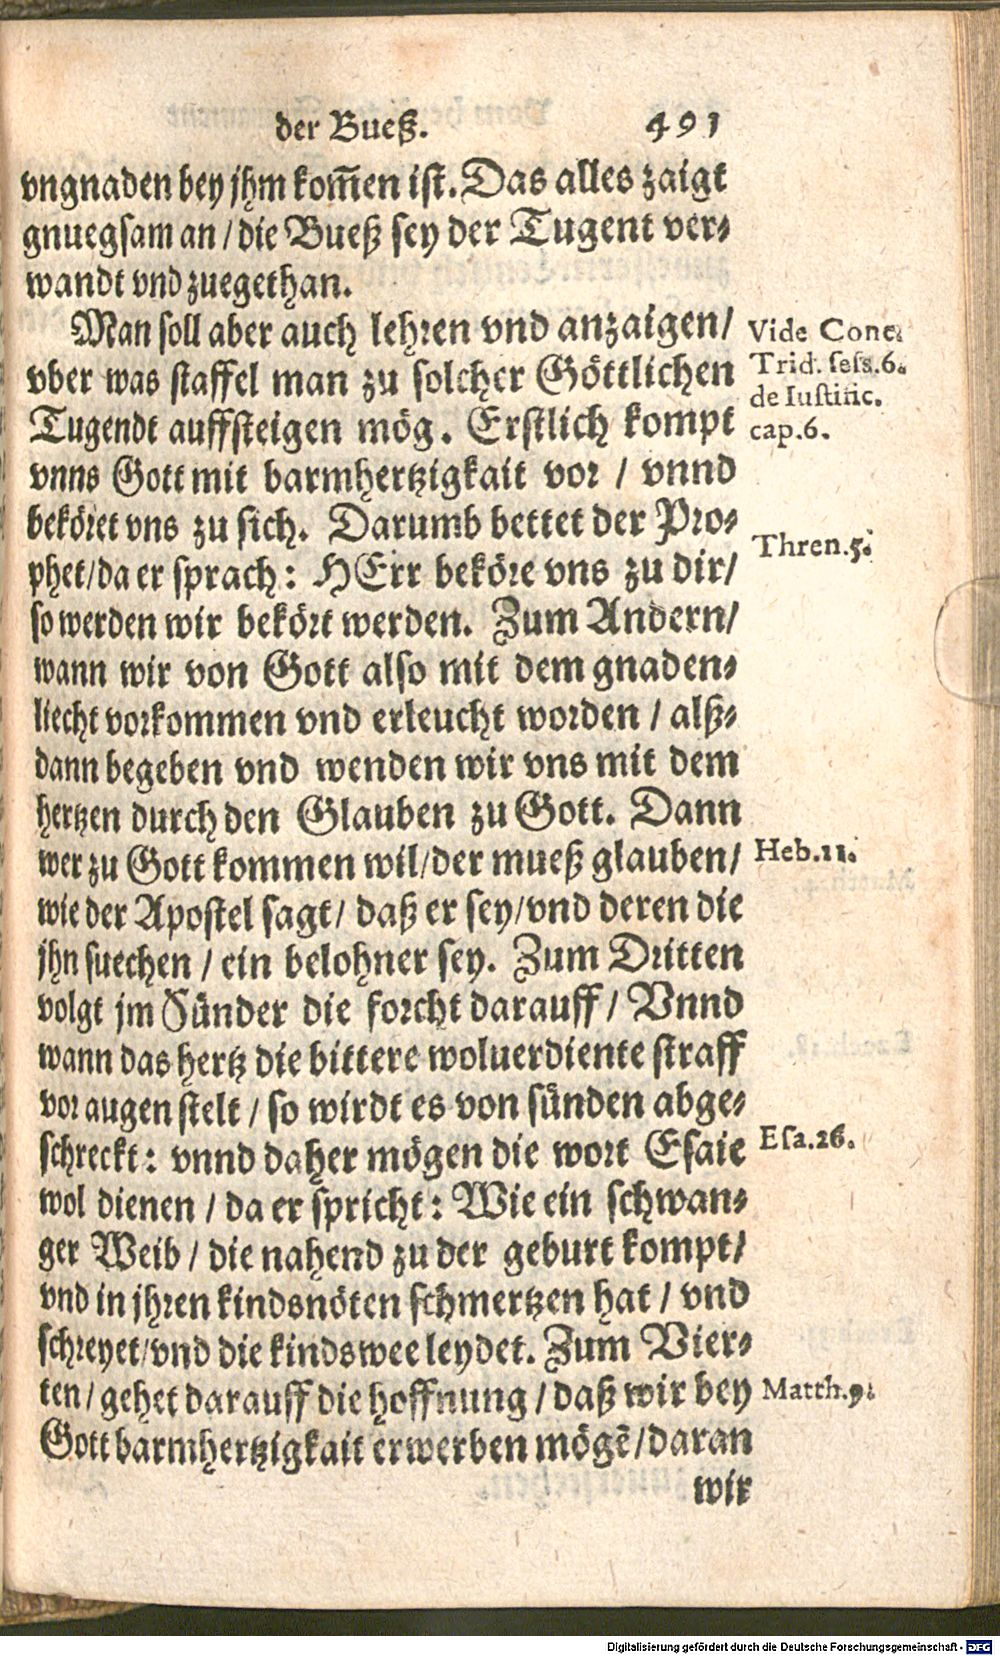 der Bueß. 491
vngnaden bey jhm kom̃en ist. Das alles zaigt
gnuegsam an / die Bueß sey der Tugent ver-
wandt vnd zuegethan.
Man soll aber auch lehren vnd anzaigen /
vber was staffel man zu solcher Göttlichen
Tugendt auffsteigen mög. Erstlich kompt
vnns Gott mit barmhertzigkait vor / vnnd
beköret vns zu sich. Darumb bettet der Pro-
phet / da er sprach: HErr beköre vns zu dir /
so werden wir bekört werden. Zum Andern /
wann wir von Gott also mit dem gnaden-
liecht vorkommen vnd erleucht worden / alß-
dann begeben vnd wenden wir vns mit dem
hertzen durch den Glauben zu Gott. Dann
wer zu Gott kommen wil / der mueß glauben /
wie der Apostel sagt / daß er sey / vnd deren die
jhn suechen / ein belohner sey. Zum Dritten
volgt jm Sünder die forcht darauff / Vnnd
wann das hertz die bittere woluerdiente straff
vor augen stelt / so wirdt es von sünden abge-
schreckt: vnnd daher mögen die wort Esaie
wol dienen / da er spricht: Wie ein schwan-
ger Weib / die nahend zu der geburt kompt /
vnd in jhren kindsnöten schmertzen hat / vnd
schreyet / vnd die kindswee leydet. Zum Vier-
ten / gehet darauff die hoffnung / daß wir bey
Gott barmhertzigkait erwerben mögẽ / daran
wir
Vide Conc.
Trid. sess.6.
de Iustific.
cap.6.
Thren.5.
Heb.11.
Esa.26.
Matth.9.
Digitalisierung gefördert durch die Deutsche Forschungsgemeinschaft - DFG